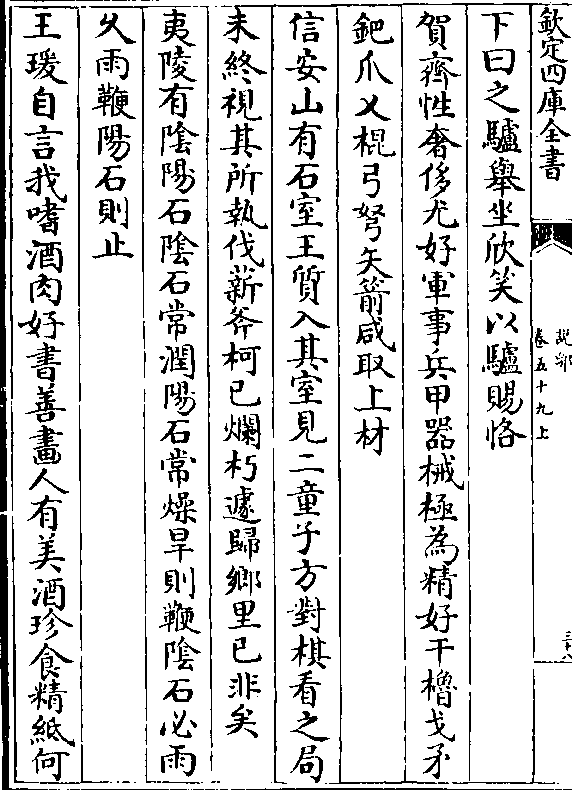 欽定四庫全書
說郛
卷五十九上
三十八
下曰之驢舉坐欣笑以驢賜恪
賀齊性奢侈尤好軍事兵甲器械極為精好干櫓戈矛
鈀爪乂棍弓弩矢箭咸取上材
信安山有石室王質入其室見二童子方對棋看之局
未終視其所執伐薪斧柯已爛朽遽歸鄉里已非矣
夷陵有陰陽石陰石常潤陽石常燥旱則鞭陰石必雨
久雨鞭陽石則止
王瑗自言我嗜酒肉好書善畫人有美酒珍食精紙何